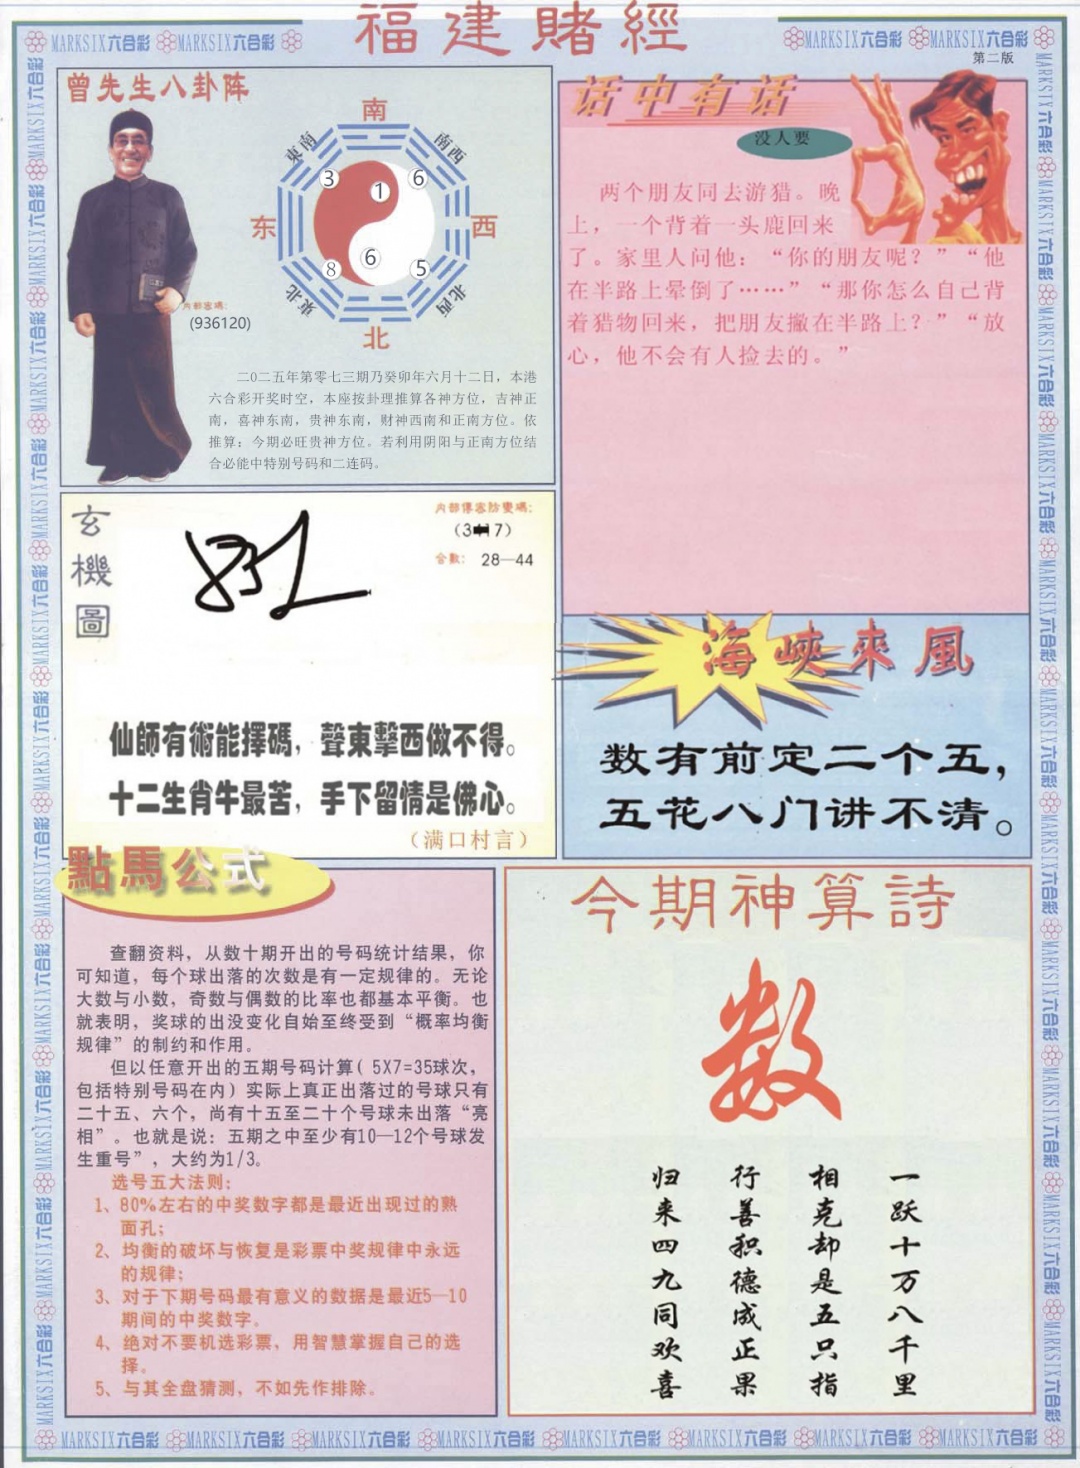 福建賭經
MARKSIX六合彩 MARKSIX六合彩
MARKSIX六合彩 MARKSIX六合彩
第二版
曾先生八卦阵
南
東南
南西
3
1
6
东
西
8
6
5
東北
北西
北
内部密碼:
(936120)
二0二五年第零七三期乃癸卯年六月十二日，本港
六合彩开奖时空，本座按卦理推算各神方位，吉神正
南，喜神东南，贵神东南，财神西南和正南方位。依
推算：今期必旺贵神方位。若利用阴阳与正南方位结
合必能中特别号码和二连码。
话中有话
没人要
两个朋友同去游猎。晚
上，一个背着一头鹿回来
了。家里人问他：“你的朋友呢？”“他
在半路上晕倒了……”“那你怎么自己背
着猎物回来，把朋友撇在半路上？”“放
心，他不会有人捡去的。”
玄機圖
内部傳密防變碼:
合數: 28—44
仙師有術能擇碼，聲東擊西做不得。
十二生肖牛最苦，手下留情是佛心。
（满口村言）
海峽來風
数有前定二个五，
五花八门讲不清。
點馬公式
查翻资料，从数十期开出的号码统计结果，你
可知道，每个球出落的次数是有一定规律的。无论
大数与小数，奇数与偶数的比率也都基本平衡。也
就表明，奖球的出没变化自始至终受到“概率均衡
规律”的制约和作用。
但以任意开出的五期号码计算( 5X7=35球次，
包括特别号码在内）实际上真正出落过的号球只有
二十五、六个，尚有十五至二十个号球未出落“亮
相”。也就是说：五期之中至少有10—12个号球发
生重号”，大约为1/3。
选号五大法则：
1、80%左右的中奖数字都是最近出现过的熟
面孔；
2、均衡的破坏与恢复是彩票中奖规律中永远
的规律；
3、对于下期号码最有意义的数据是最近5—10
期间的中奖数字。
4、绝对不要机选彩票，用智慧掌握自己的选
择。
5、与其全盘猜测，不如先作排除。
今期神算詩
数
一跃十万八千里
相克却是五只指
行善积德成正果
归来四九同欢喜
MARKSIX六合彩 MARKSIX六合彩 MARKSIX六合彩 MARKSIX六合彩 MARKSIX六合彩 MARKSIX六合彩 MARKSIX六合彩 MARKSIX六合彩